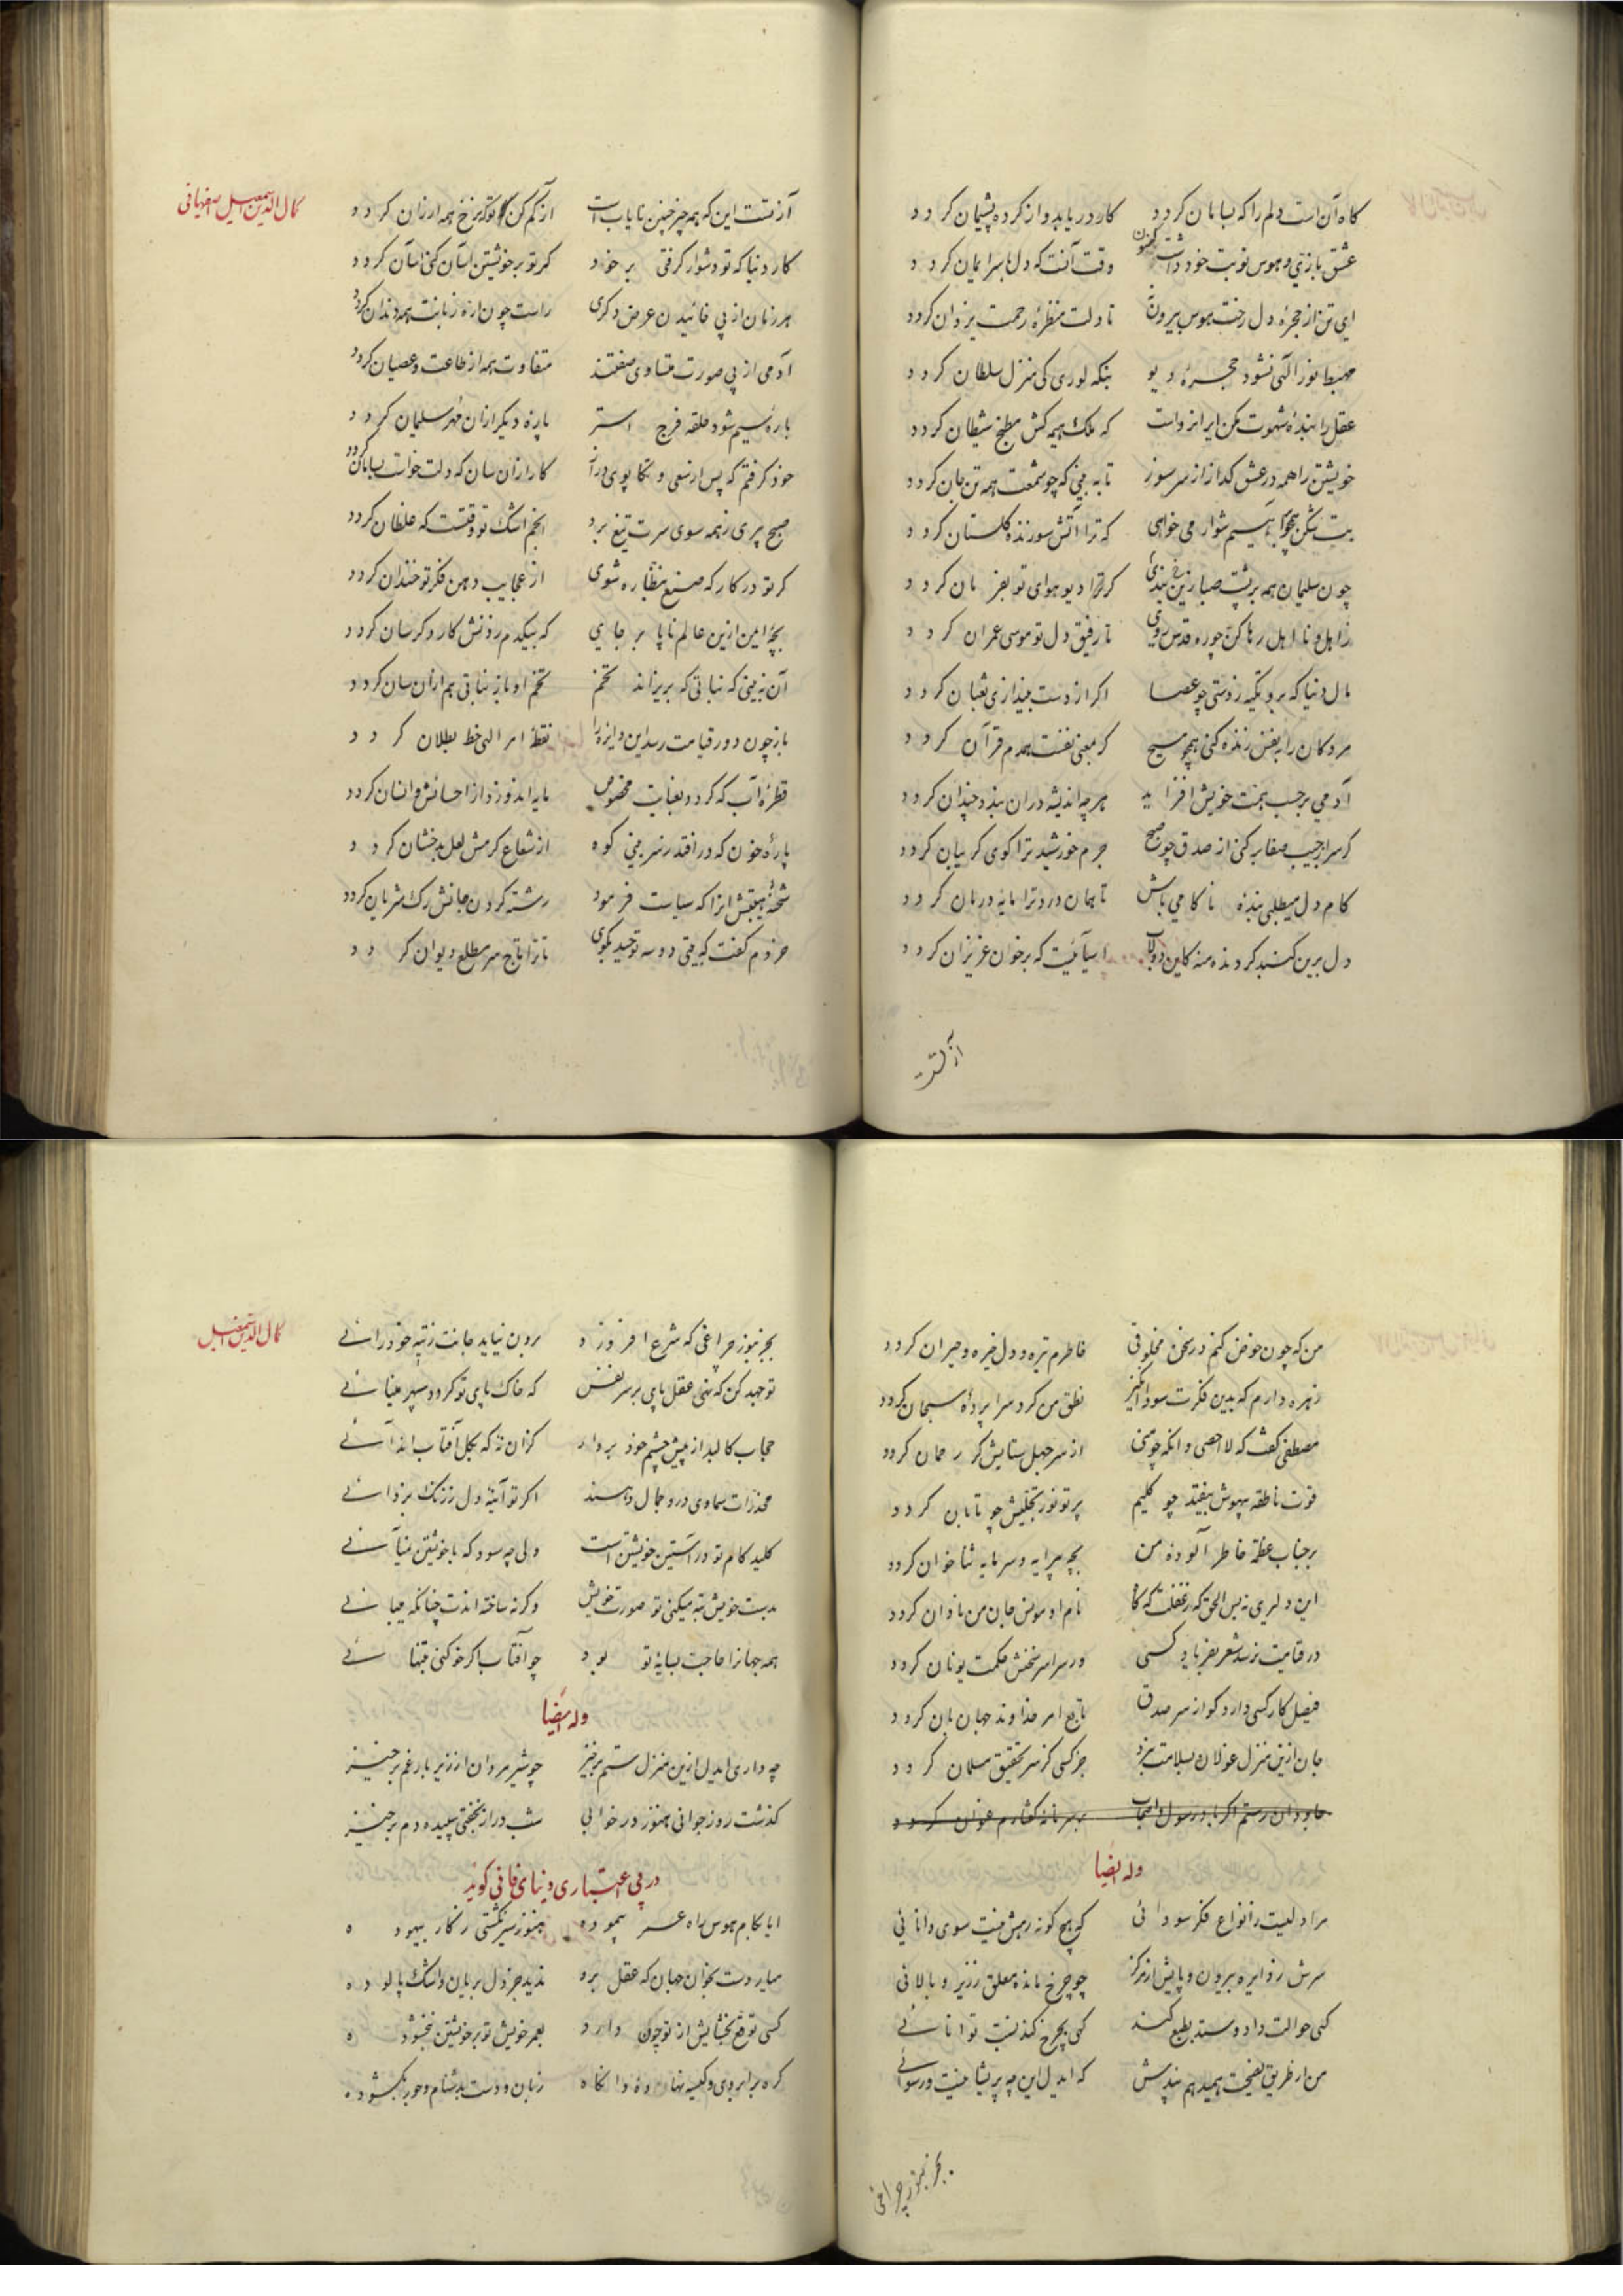 کاه آن است دلم را که بسامان کردد کار دریابد و از کرده پشیمان کردد
عشق بازی و هوس نوبت خود داشت کنون وقت آنست که دل با سر ایمان کردد
ای تن از حجرهٔ دل رخت هوس بیرون تا دلت منظرهٔ رحمت یزدان کردد
مهبط نور الهی نشود حجرهٔ دیو بنکه لوری کی منزل سلطان کردد
عقل را بندهٔ شهوت مکن ایرا نه رواست که ملک هیمه کش مطبخ شیطان کردد
خویشتن را همه در عشق کداز از سر سوز تا به بینی که چو شمعت همه تن جان کردد
بت شکن همچو براهیم شو ار می خواهی که ترا آتش سوزنده کلستان کردد
چون سلیمان همه بر پشت صبا زین بندی کر ترا دیو هوای تو بفرمان کردد
ز اهل و نا اهل رها کن چو ره قدس روی تا رفیق دل تو موسی عمران کردد
مال دنیا که برو تکیه زدستی چو عصا اکر از دست بیندازی ثعبان کردد
مردکان را بنفس زنده کنی همچو مسیح کر معنی نفست همدم قرآن کردد
آدمی بر حسب همت خویش افزاید هر چه اندیشه در آن بندد چندان کردد
کر سر از جیب صفا بر کنی از صدق چو صبح جرم خورشید ترا کوی کریبان کردد
کام دل میطلبی بندهٔ ناکامی باش تا همان درد ترا مایهٔ درمان کردد
دل برین کنبد کردنده منه کاین دولاب آسیائیست که بر خون عزیزان کردد
آز تست
کمال الدین اسمعیل اصفهانی
آز تست این که همه چیز چنین نایاب است آز کم کن تو که نرخ همه ارزان کردد
کار دنیا که تو دشوار کرفتی بر خود کر تو بر خویشتن آسان کنی آسان کردد
هر زمان از پی خائیدن عرض دکری راست چون اره زبانت همه دندان کردد
آدمی از پی صورت متساوی صفتند متفاوت همه از طاعت و عصیان کردد
پارهٔ سیم شود حلقه فرج استر پارهٔ دیکر ازان مهر سلیمان کردد
خود کرفتم که پس از سعی و تکاپوی دراز کار ازان سان که دلت خواست بسامان کردد
صبح پیری ز همه سوی سرت تیغ برد انجم اشک تو وقتست که غلطان کردد
کر تو در کارکه صنع بنظاره شوی از عجایب دهن فکر تو خندان کردد
بچه ایمن ازین عالم ناپا بر جای که بیکدم زدنش کار دکرسان کردد
آن نه بینی که نباتی که بریزاند تخم تخم او باز نباتی هم ازان سان کردد
باز چون دور قیامت رسد این دایره را نقطهٔ امر الهی خط بطلان کردد
قطرهٔ آب که کردد بعنایت مخصوص مایه اندوزد از احسانش و انسان کردد
پارهٔ خون که در افتد ز سر بینی کوه از شعاع کرمش لعل بدخشان کردد
شحنهٔ هیبتش آنرا که سیاست فرمود رشته کردن جانش رک شریان کردد
خردم کفت که بیتی دو سه توحید بکوی تا ترا تاج سر مطلع دیوان کردد
من که چون خوض کنم در سخن مخلوقی خاطرم تیره و دل خیره و حیران کردد
زهره دارم که بدین فکرت سودا انکیز نطق من کرد سراپردهٔ سبحان کردد
مصطفی کفت که لا احصی و آنکه چو منی از سر جهل ستایش کر رحمان کردد
قوت ناطقه بیهوش بیفتد چو کلیم پرتو نور تجلیش چو تابان کردد
بر جناب عظمة خاطر آلوده من بچه پیرایه و سرمایه ثنا خوان کردد
این دلیری نه بس الحق که ز غفلت که کاه نام او مونس جان من نادان کردد
در قیامت نرسد شعر بفریاد کسی ور سراسر سخنش حکمت یونان کردد
فیصل کار کسی دارد کو از سر صدق تابع امر خداوند جهان بان کردد
جان ازین منزل غولان بسلامت نبرد جز کسی کز سر تحقیق مسلمان کردد
جاودان رستم اکر یاد رسول و اصحاب بر سر نامهٔ کفتارم عنوان کردد
وله ایضا
مرا دلیست ز انواع فکر سودائی که هیچ کونه رهش نیست سوی دانائی
سرش ز دایره بیرون و پایش از مرکز چو چرخ مانده معلق ز زیر و بالائی
کهی حوالت داد و ستد بطبع کند کهی بچرخ کند نسبت توانائی
من از طریق نصیحت همیدهم پندش که ای دل این چه پریشانیست و رسوائی
بجز بنور چراغی
کمال الدین اسمعیل
بجز بنور چراغی که شرع افروزد برون نیاید جانت ز تیه خود رائی
تو جهد کن که نهی عقل پای بر سر نفس که خاک پای تو کردد سپهر مینائی
حجاب کالبد از پیش چشم خود بردار کزان نه که بکل آفتاب اندائی
مخدرات سماوی درو جمال دهند اکر تو آینهٔ دل ز زنک بزدائی
کلید کام تو در آستین خویشتن است ولی چه سود که با خویشتن نمی آئی
بدست خویش تبه میکنی تو صورت خویش وکرنه ساخته اندت چنانکه میبائی
همه جهانرا حاجت بسایهٔ تو بود چو آفتاب اکر خو کنی بتنهائی
وله ایضا
چه داری ای دل ازین منزل ستم برخیز چو شیر مردان از زیر بار غم برخیز
کذشت روز جوانی هنوز در خوابی شب دراز بخفتی سپیده دم برخیز
در بی اعتباری دنیای فانی کوید
ایا بکام هوس راه عمر پیموده هنوز سیر نکشتی ز کار بیهوده
میار دست بخوان جهان که عقل برو ندید جز دل بریان و اشک پالوده
کسی توقع بخشایش از تو چون دارد بعمر خویش تو بر خویشتن نبخشوده
کره بر ابروی و کیسه نهادهٔ وانکاه زبان و دست بدشنام و جور بکشوده